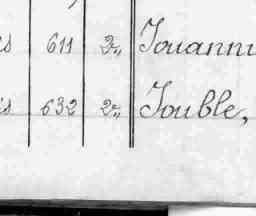 is 611 2„ Jouanni
is 632 2„ Jouble,